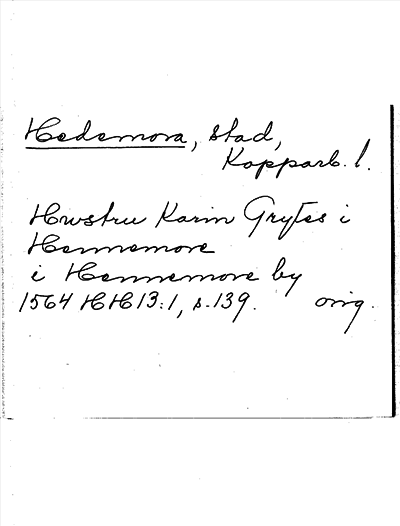 Hedemora, stad,
Kopparb. l.
Hwstru Karin Grytes i
Hennemore
i Hennemore by
1564 HH 13:1, s. 139. orig.